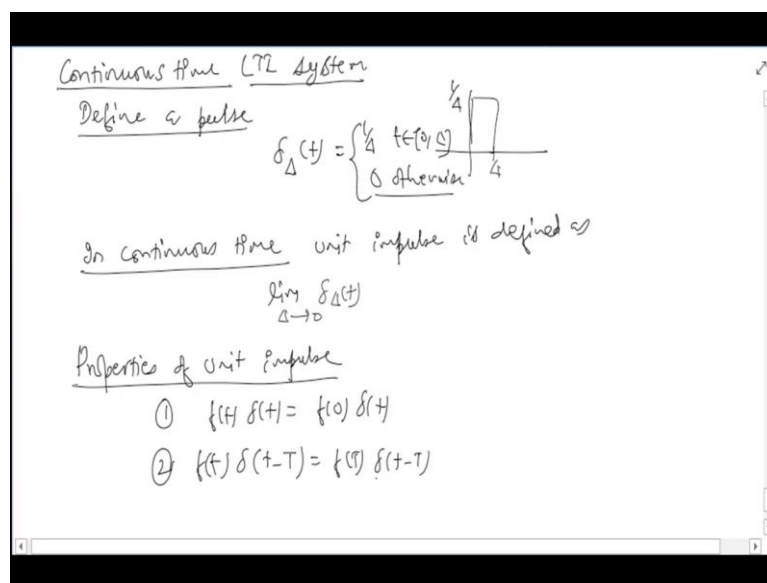 Continuous time LTI system
Define a pulse
1/Δ
δ_Δ(t) = { 1/Δ t∈[0,Δ]
0 otherwise
Δ
In continuous time unit impulse is defined as
lim δ_Δ(t)
Δ→0
Properties of unit impulse
① f(t) δ(t) = f(0) δ(t)
② f(t) δ(t-T) = f(T) δ(t-T)